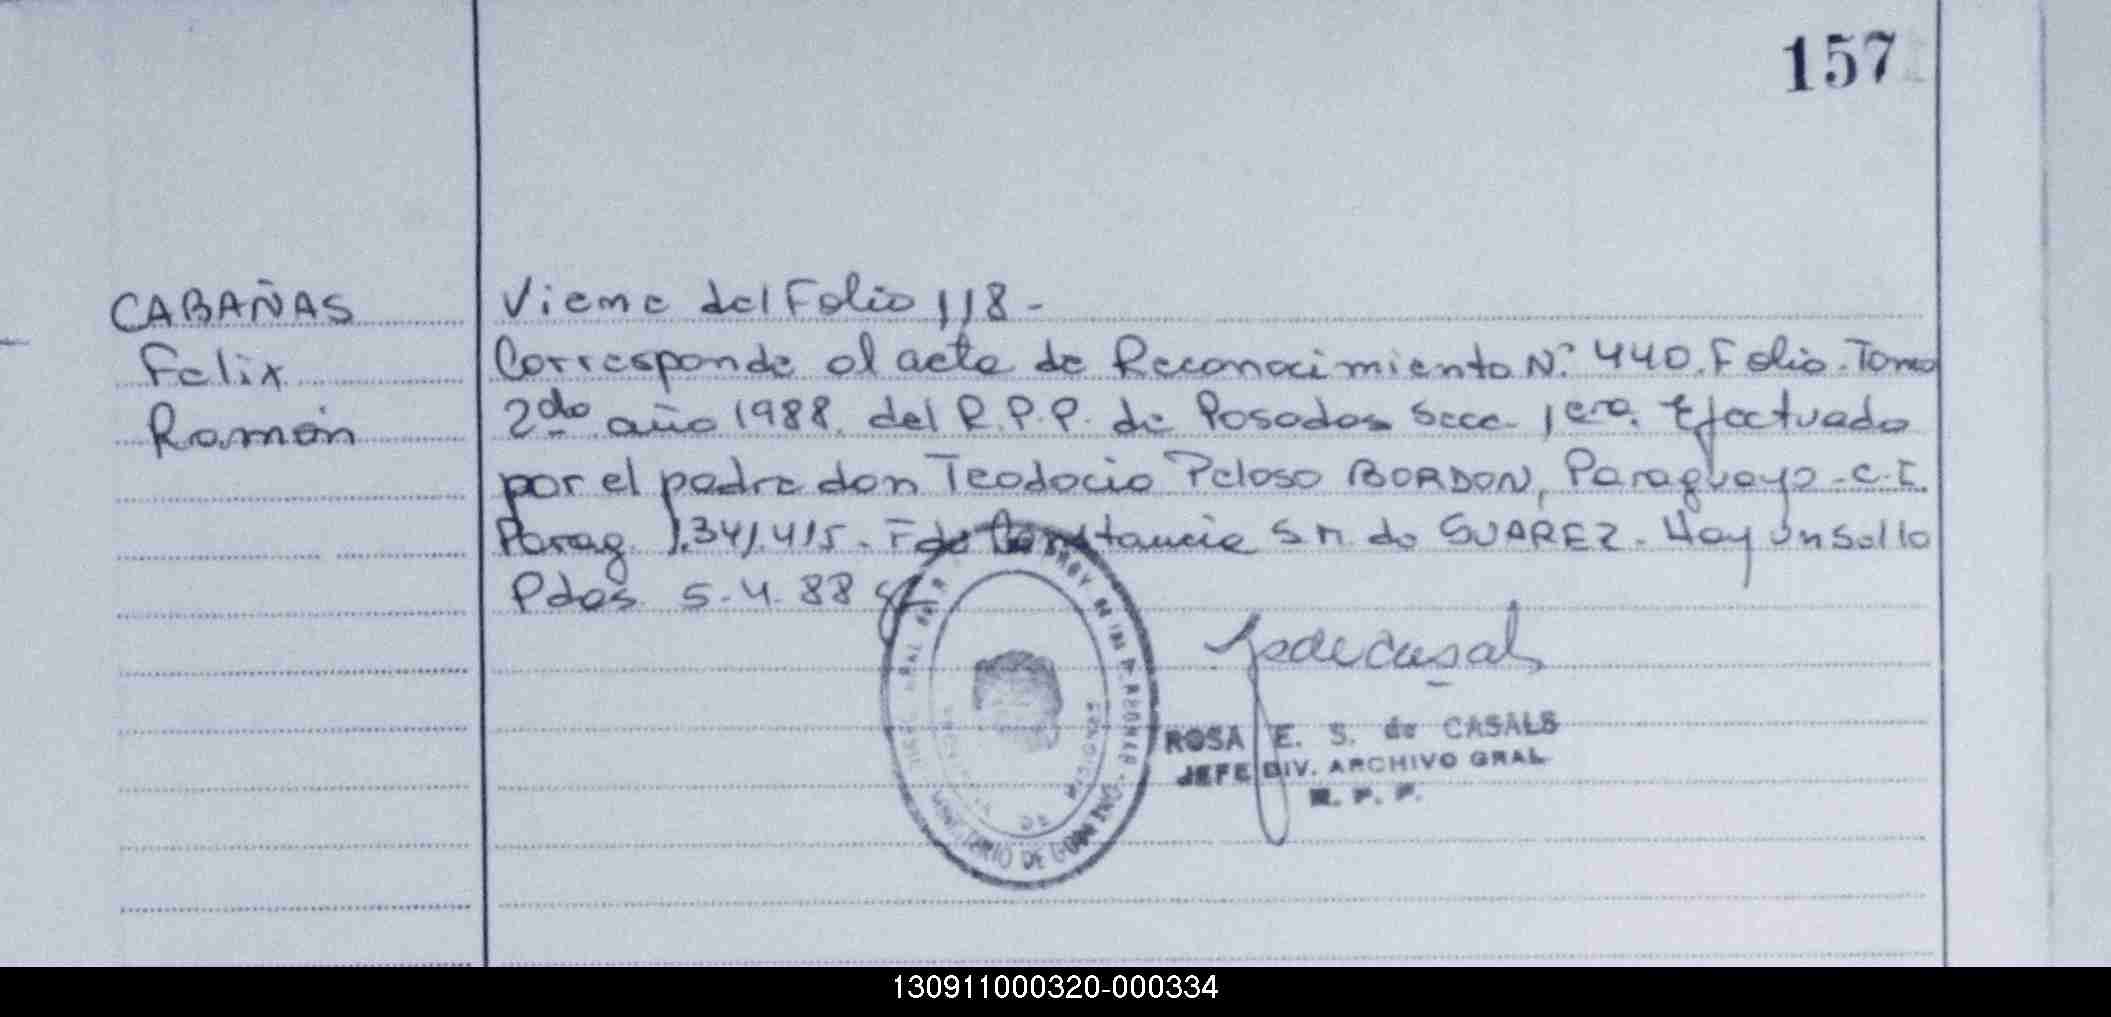 157
CABAÑAS
Felix
Ramón
Viene del Folio 118-
Corresponde al acta de Reconocimiento N.° 440. Folio. Tomo
2do año 1988. del R.P.P. de Posadas Secc. 1era. Efectuado
por el padre don Teodocio Peloso BORDON, Paraguayo - C.I.
Parag. 1.341.415. Fdo Constancia S M. de SUAREZ. Hay un sello
Pdas 5.4.88
ROSA E. S. de CASALS
JEFE DIV. ARCHIVO GRAL
R. P. P.
MINISTERIO DE GOBIERNO
DE MISIONES
130911000320-000334